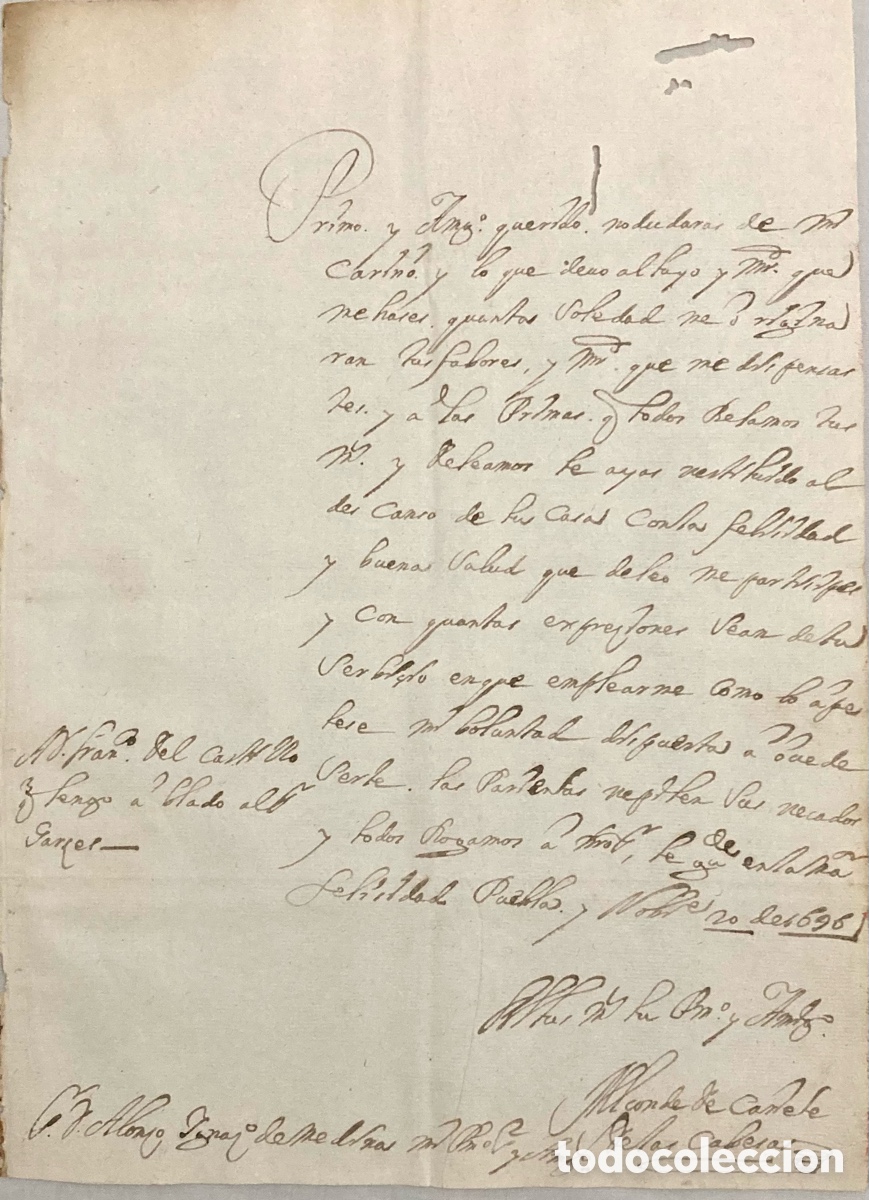 Primo. y Amgo. querido. no dudaras de mi
Cariño. y lo que deuo al tuyo y Mrd. que
me hases. quanta Soledad me origina
ran tus fabores, y Mrd. que me dispensas
tes. y a las Primas. q todos Besamos tus
Ms. y deseamos te ayas restituido al
des canso de tu Casa Con la felisidad
y buena Salud que deseo me partisipes
y con quantas expreçiones Sean de tu
Serbiçio en que emplearme Como lo ape
tese mi boluntad dispuesta a obede
Serte. las Parientas repiten Sus recados
y todos Rogamos a nro Sr, te gde en la Mar
felisidad Puebla. y Nobre 20 de 1696
A Dn. franco. del Castillo
tengo a blado al Sr
Garzes
Bl tus Ms tu Pmo. y Amigo.
El Conde de Cañete
de las Cabesas
Sr. Dn. Alonso Ignaçio de Medina mi Pmo Sr y Amgo
todocoleccion